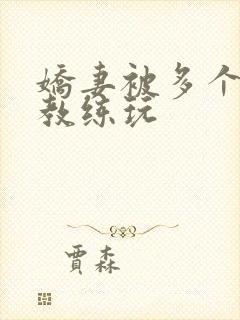 嬌妻被多个
教练玩
賈森